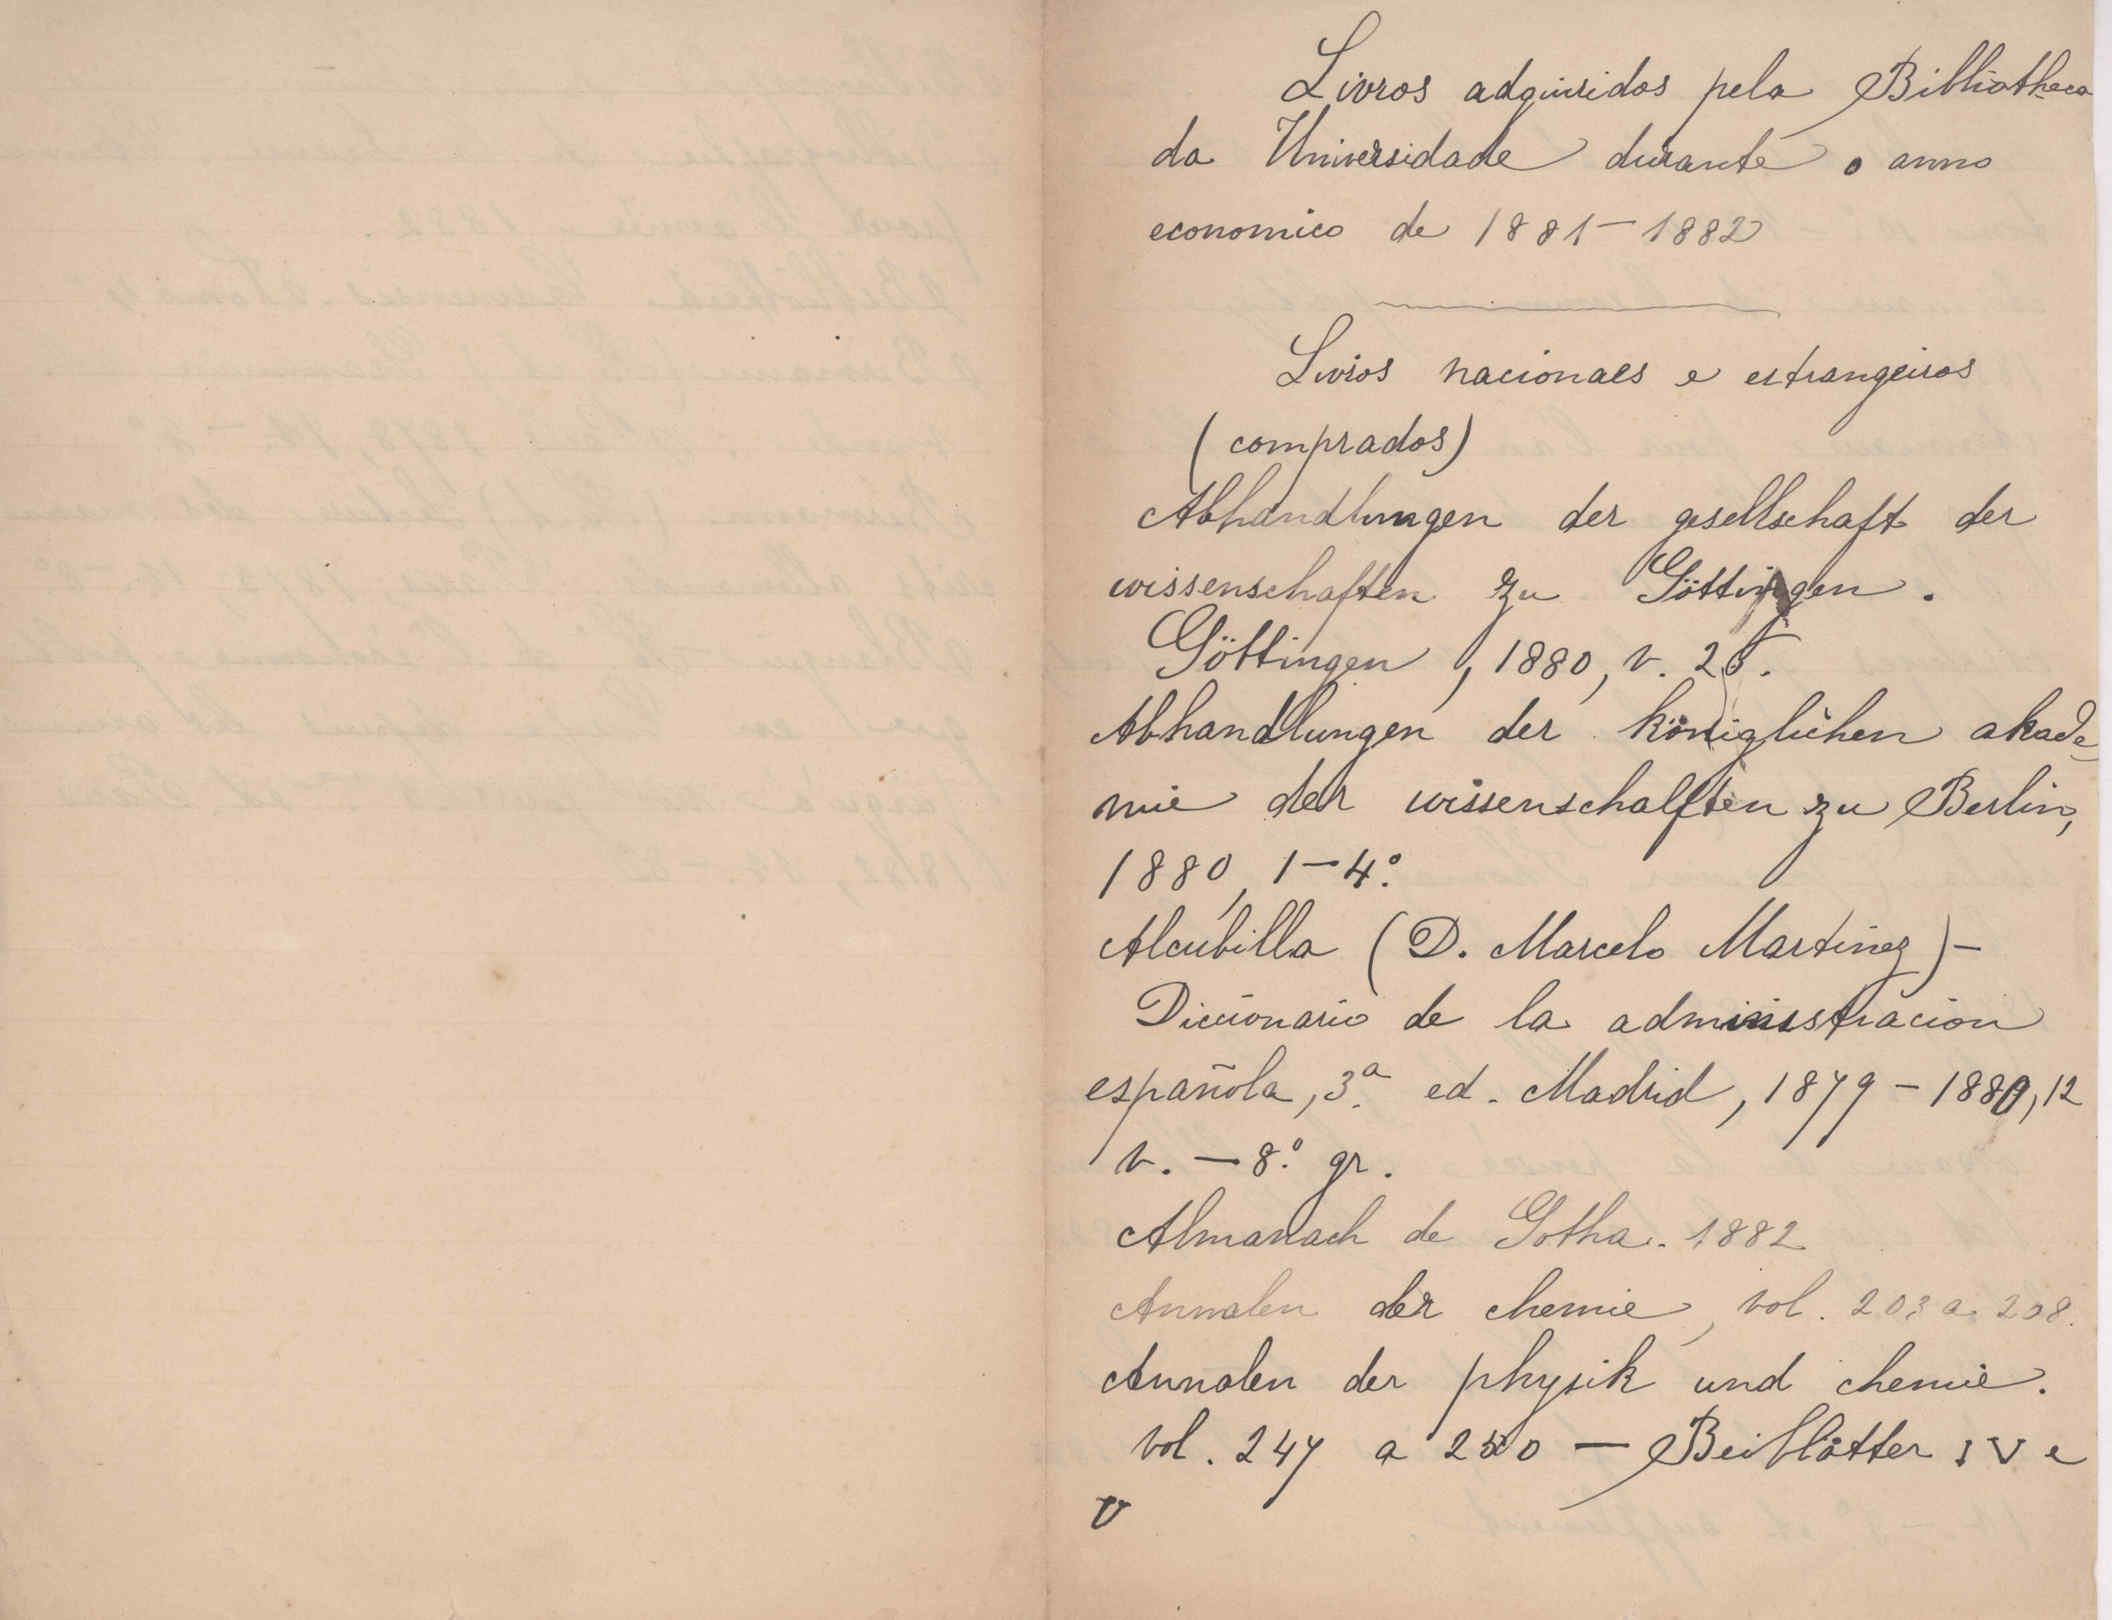 Livros adquiridos pela Bibliotheca
da Universidade durante o anno
economico de 1881-1882
Livros nacionaes e estrangeiros
(comprados)
Abhandlungen der gesellschaft der
wissenschaften zu Göttingen.
Göttingen, 1880, v. 25.
Abhandlungen der königlichen akade
mie der wissenschalften zu Berlin,
1880, 1-4º.
Alcubilla (D. Marcelo Martinez)-
Diccionario de la administracion
española, 3.ª ed. Madrid, 1879-1880, 12
v. - 8.º gr.
Almanach de Gotha. 1882
Annalen der chemie, vol. 203 a 208.
Annalen der physik und chemie.
vol. 247 a 250 - Beiblätter IV e
V